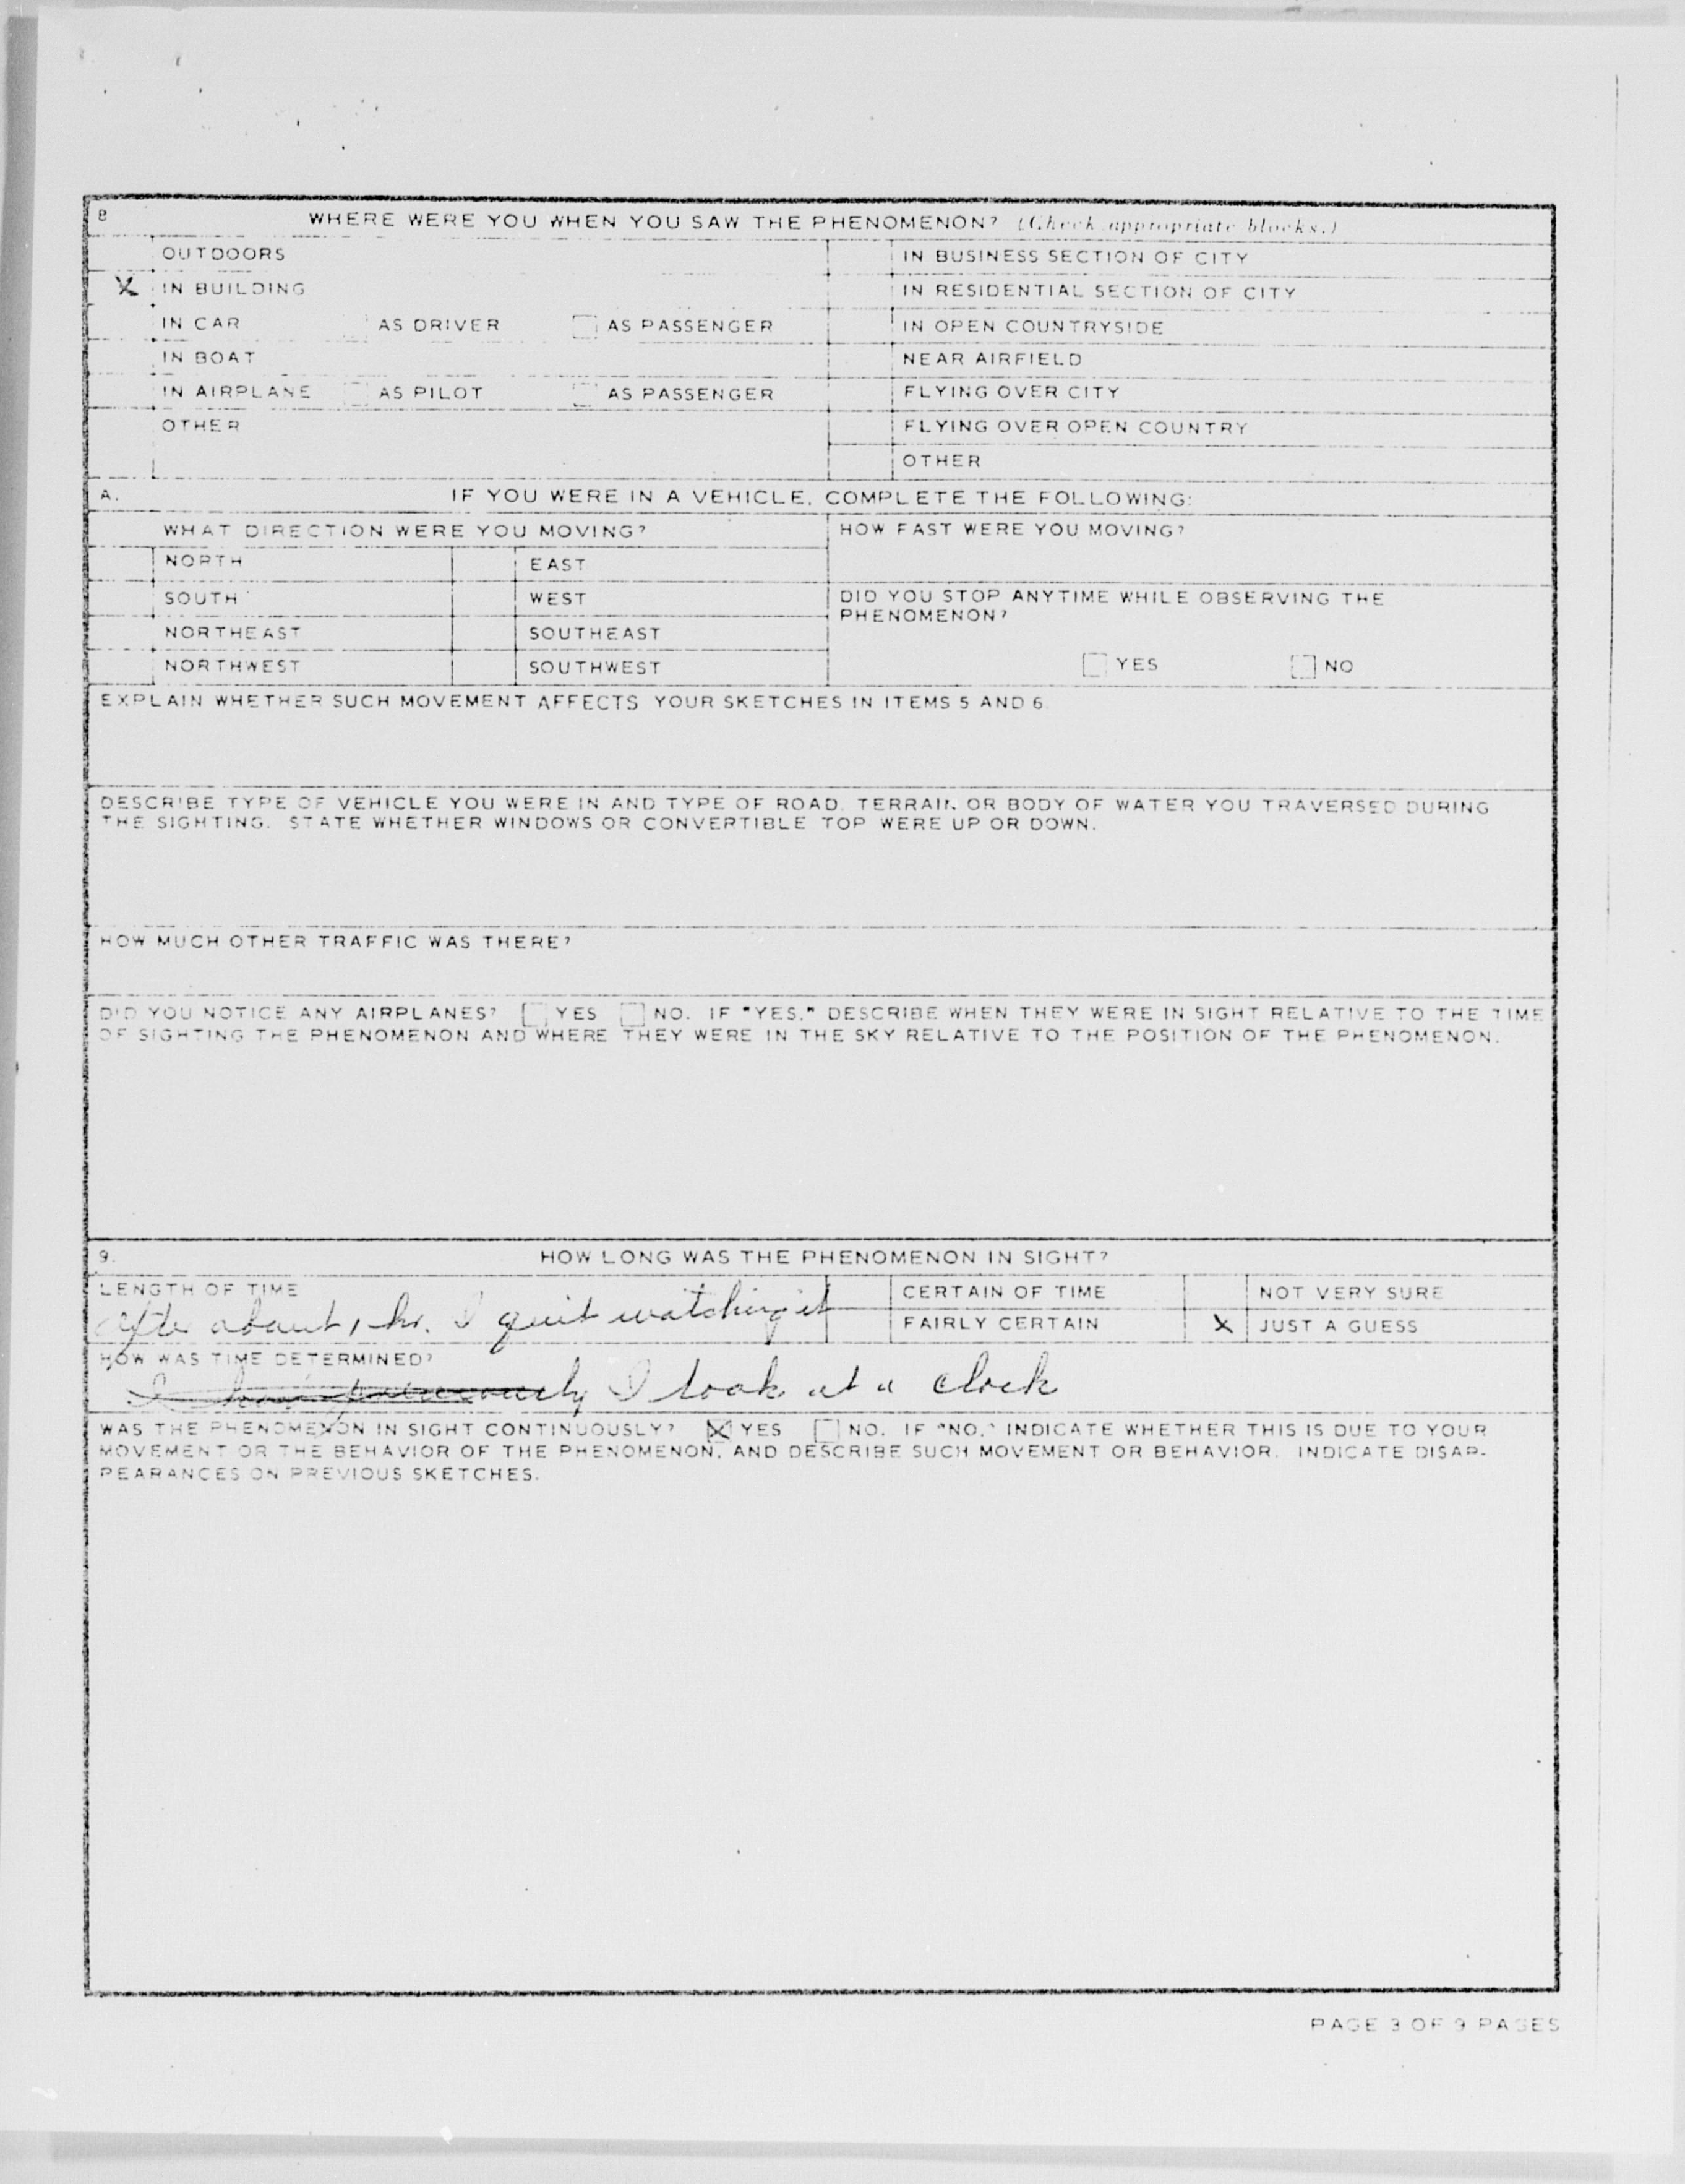 8 WHERE WERE YOU WHEN YOU SAW THE PHENOMENON? (Check appropriate blocks.)
OUTDOORS IN BUSINESS SECTION OF CITY
X IN BUILDING IN RESIDENTIAL SECTION OF CITY
IN CAR AS DRIVER AS PASSENGER IN OPEN COUNTRYSIDE
IN BOAT NEAR AIRFIELD
IN AIRPLANE AS PILOT AS PASSENGER FLYING OVER CITY
OTHER FLYING OVER OPEN COUNTRY
OTHER
A. IF YOU WERE IN A VEHICLE, COMPLETE THE FOLLOWING:
WHAT DIRECTION WERE YOU MOVING? HOW FAST WERE YOU MOVING?
NORTH EAST
SOUTH WEST DID YOU STOP ANYTIME WHILE OBSERVING THE
PHENOMENON?
NORTHEAST SOUTHEAST
NORTHWEST SOUTHWEST YES NO
EXPLAIN WHETHER SUCH MOVEMENT AFFECTS YOUR SKETCHES IN ITEMS 5 AND 6.
DESCRIBE TYPE OF VEHICLE YOU WERE IN AND TYPE OF ROAD, TERRAIN OR BODY OF WATER YOU TRAVERSED DURING
THE SIGHTING. STATE WHETHER WINDOWS OR CONVERTIBLE TOP WERE UP OR DOWN.
HOW MUCH OTHER TRAFFIC WAS THERE?
DID YOU NOTICE ANY AIRPLANES? YES NO. IF "YES," DESCRIBE WHEN THEY WERE IN SIGHT RELATIVE TO THE TIME
OF SIGHTING THE PHENOMENON AND WHERE THEY WERE IN THE SKY RELATIVE TO THE POSITION OF THE PHENOMENON.
9. HOW LONG WAS THE PHENOMENON IN SIGHT?
LENGTH OF TIME CERTAIN OF TIME NOT VERY SURE
after about 1 hr. I quit watching it FAIRLY CERTAIN X JUST A GUESS
HOW WAS TIME DETERMINED?
I look at a clock
WAS THE PHENOMENON IN SIGHT CONTINUOUSLY? X YES NO. IF "NO," INDICATE WHETHER THIS IS DUE TO YOUR
MOVEMENT OR THE BEHAVIOR OF THE PHENOMENON, AND DESCRIBE SUCH MOVEMENT OR BEHAVIOR. INDICATE DISAP-
PEARANCES ON PREVIOUS SKETCHES.
PAGE 3 OF 9 PAGES